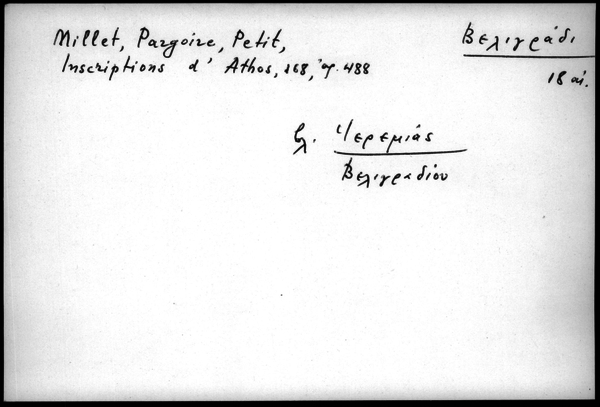 Millet, Pargoire, Petit,
Inscriptions d' Athos, 168, ἀρ. 488
Βελιγράδι
18 αἰ.
βλ. Ἱερεμίας
Βελιγραδίου